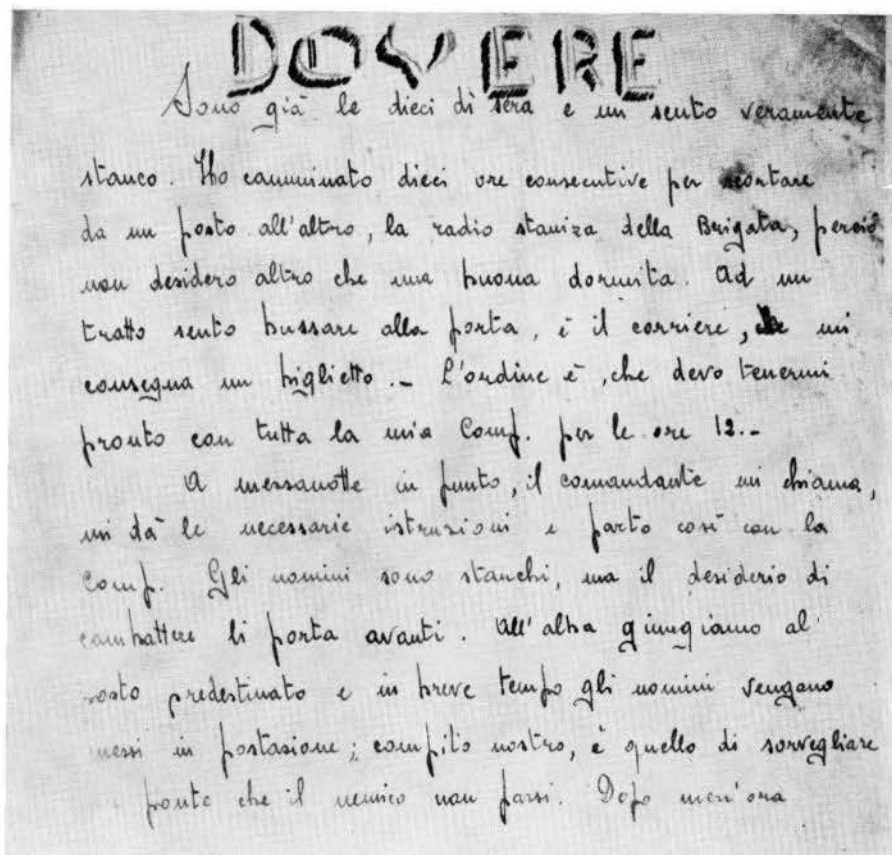 DOVERE
Sono già le dieci di sera e mi sento veramente
stanco. Ho camminato dieci ore consecutive per scortare
da un posto all'altro, la radio staniza della Brigata, perciò
non desidero altro che una buona dormita. Ad un
tratto sento bussare alla porta, è il corriere, che mi
consegna un biglietto.- L'ordine è, che devo tenermi
pronto con tutta la mia Comp. per le ore 12.-
A messanotte in punto, il comandante mi chiama,
mi dà le necessarie istrusioni e parto così con la
Comp. Gli uomini sono stanchi, ma il desiderio di
combattere li porta avanti. All'alba giungiamo al
posto predestinato e in breve tempo gli uomini vengano
messi in postasione; compito nostro, è quello di sorvegliare
ponte che il nemico non passi. Dopo mess'ora